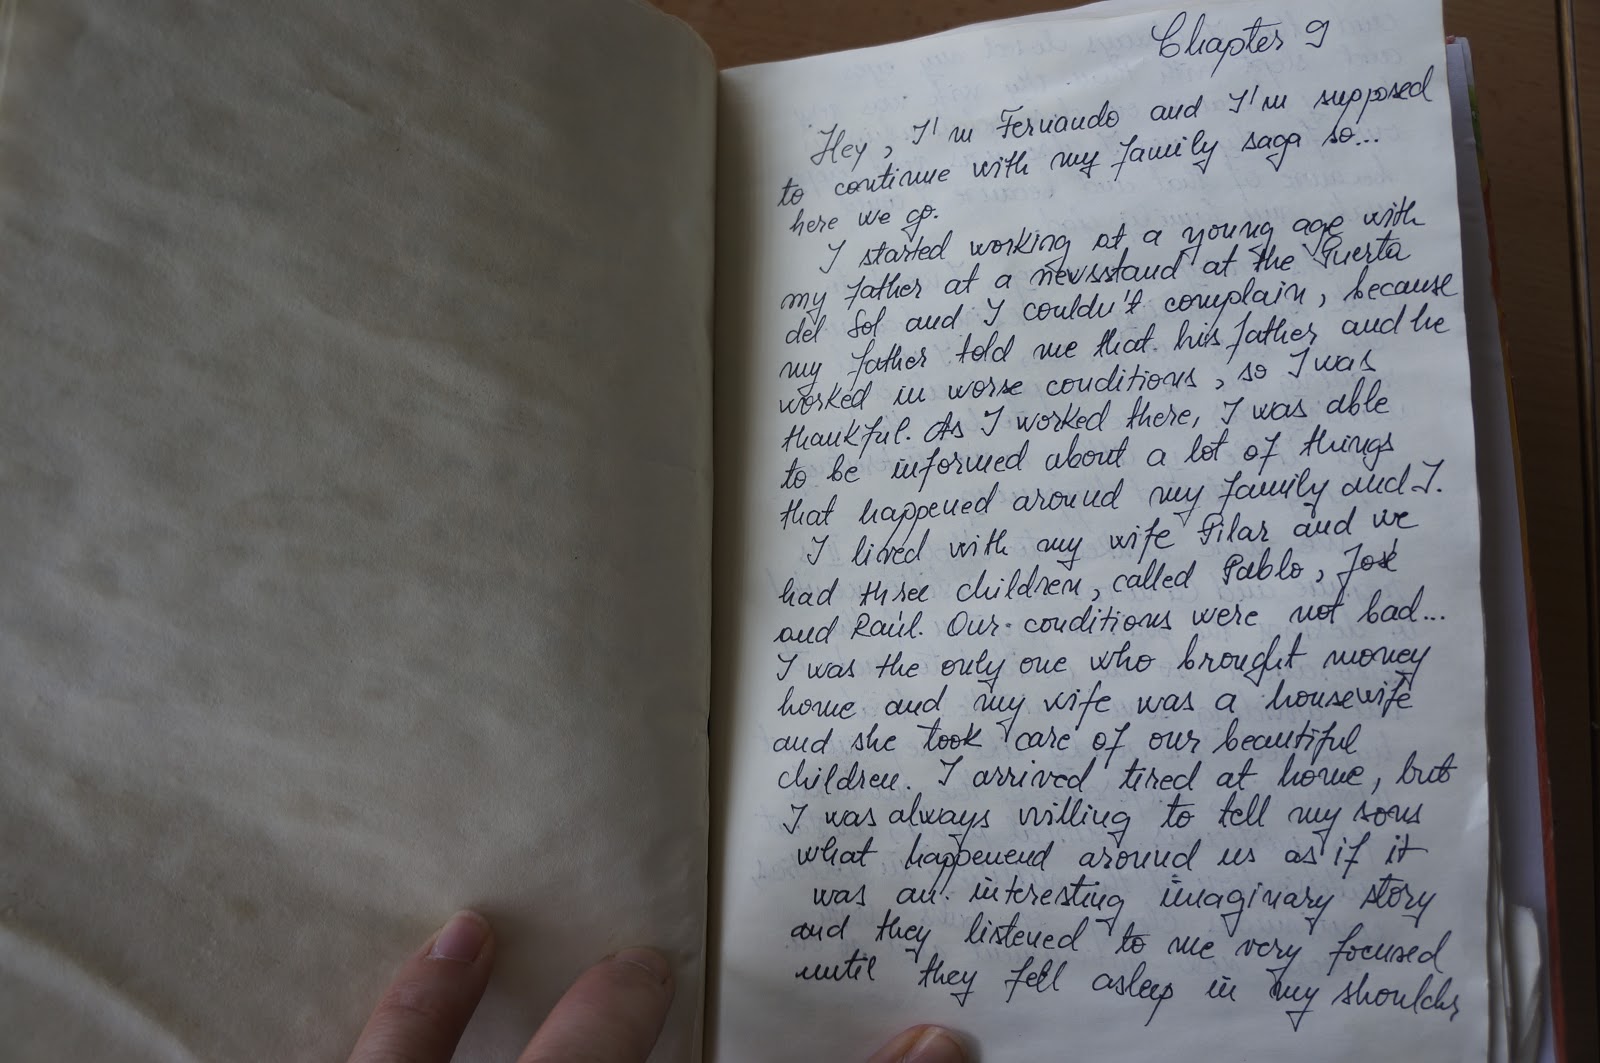 Chapter 9
Hey, I'm Fernando and I'm supposed
to continue with my family saga so...
here we go.
I started working at a young age with
my father at a newsstand at the Puerta
del Sol and I couldn't complain, because
my father told me that his father and he
worked in worse conditions, so I was
thankful. As I worked there, I was able
to be informed about a lot of things
that happened around my family and I.
I lived with my wife Pilar and we
had three children, called Pablo, José
and Raúl. Our conditions were not bad...
I was the only one who brought money
home and my wife was a housewife
and she took care of our beautiful
children. I arrived tired at home, but
I was always willing to tell my sons
what happenend around us as if it
was an interesting imaginary story
and they listened to me very focused
until they fell asleep in my shoulders